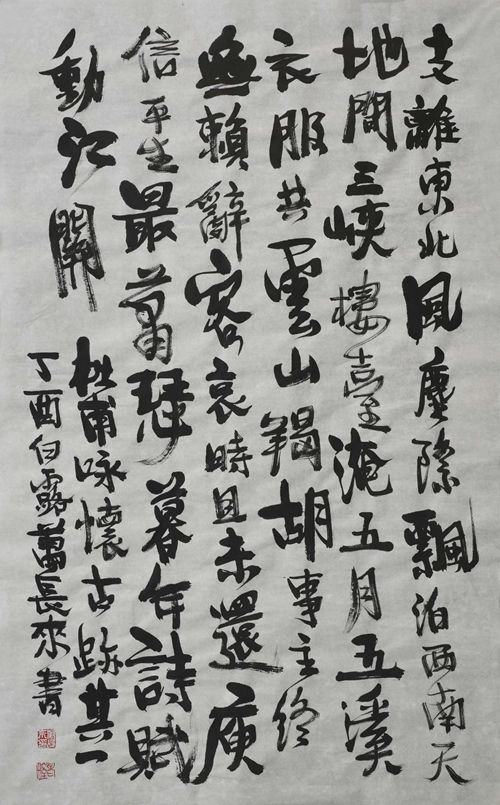 支離東北風塵際飄泊西南天
地間三峽樓臺淹五月五溪
衣服共雲山羯胡事主終
無賴辭客哀時且未還庾
信平生最蕭瑟暮年詩賦
動江關
杜甫咏懷古跡其一
丁酉白露萬長來書